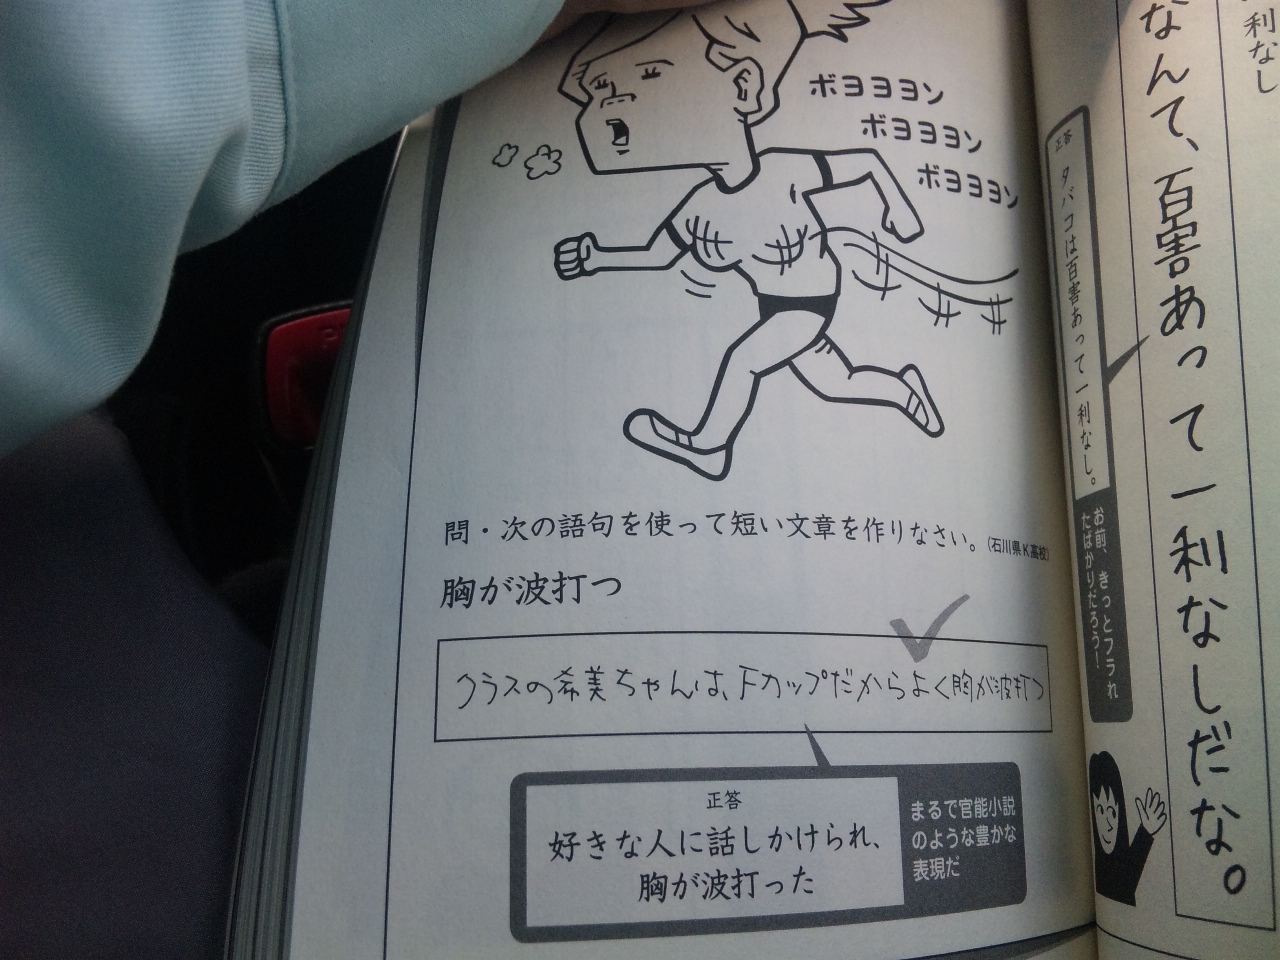 利なし
なんて、百害あって一利なしだな。
正答
タバコは百害あって一利なし。
お前、きっとフラれ
たばかりだろう！
ボヨヨヨン
ボヨヨヨン
ボヨヨヨン
問・次の語句を使って短い文章を作りなさい。（石川県K高校）
胸が波打つ
クラスの希美ちゃんは、Fカップだからよく胸が波打つ
正答
好きな人に話しかけられ、
胸が波打った
まるで官能小説
のような豊かな
表現だ